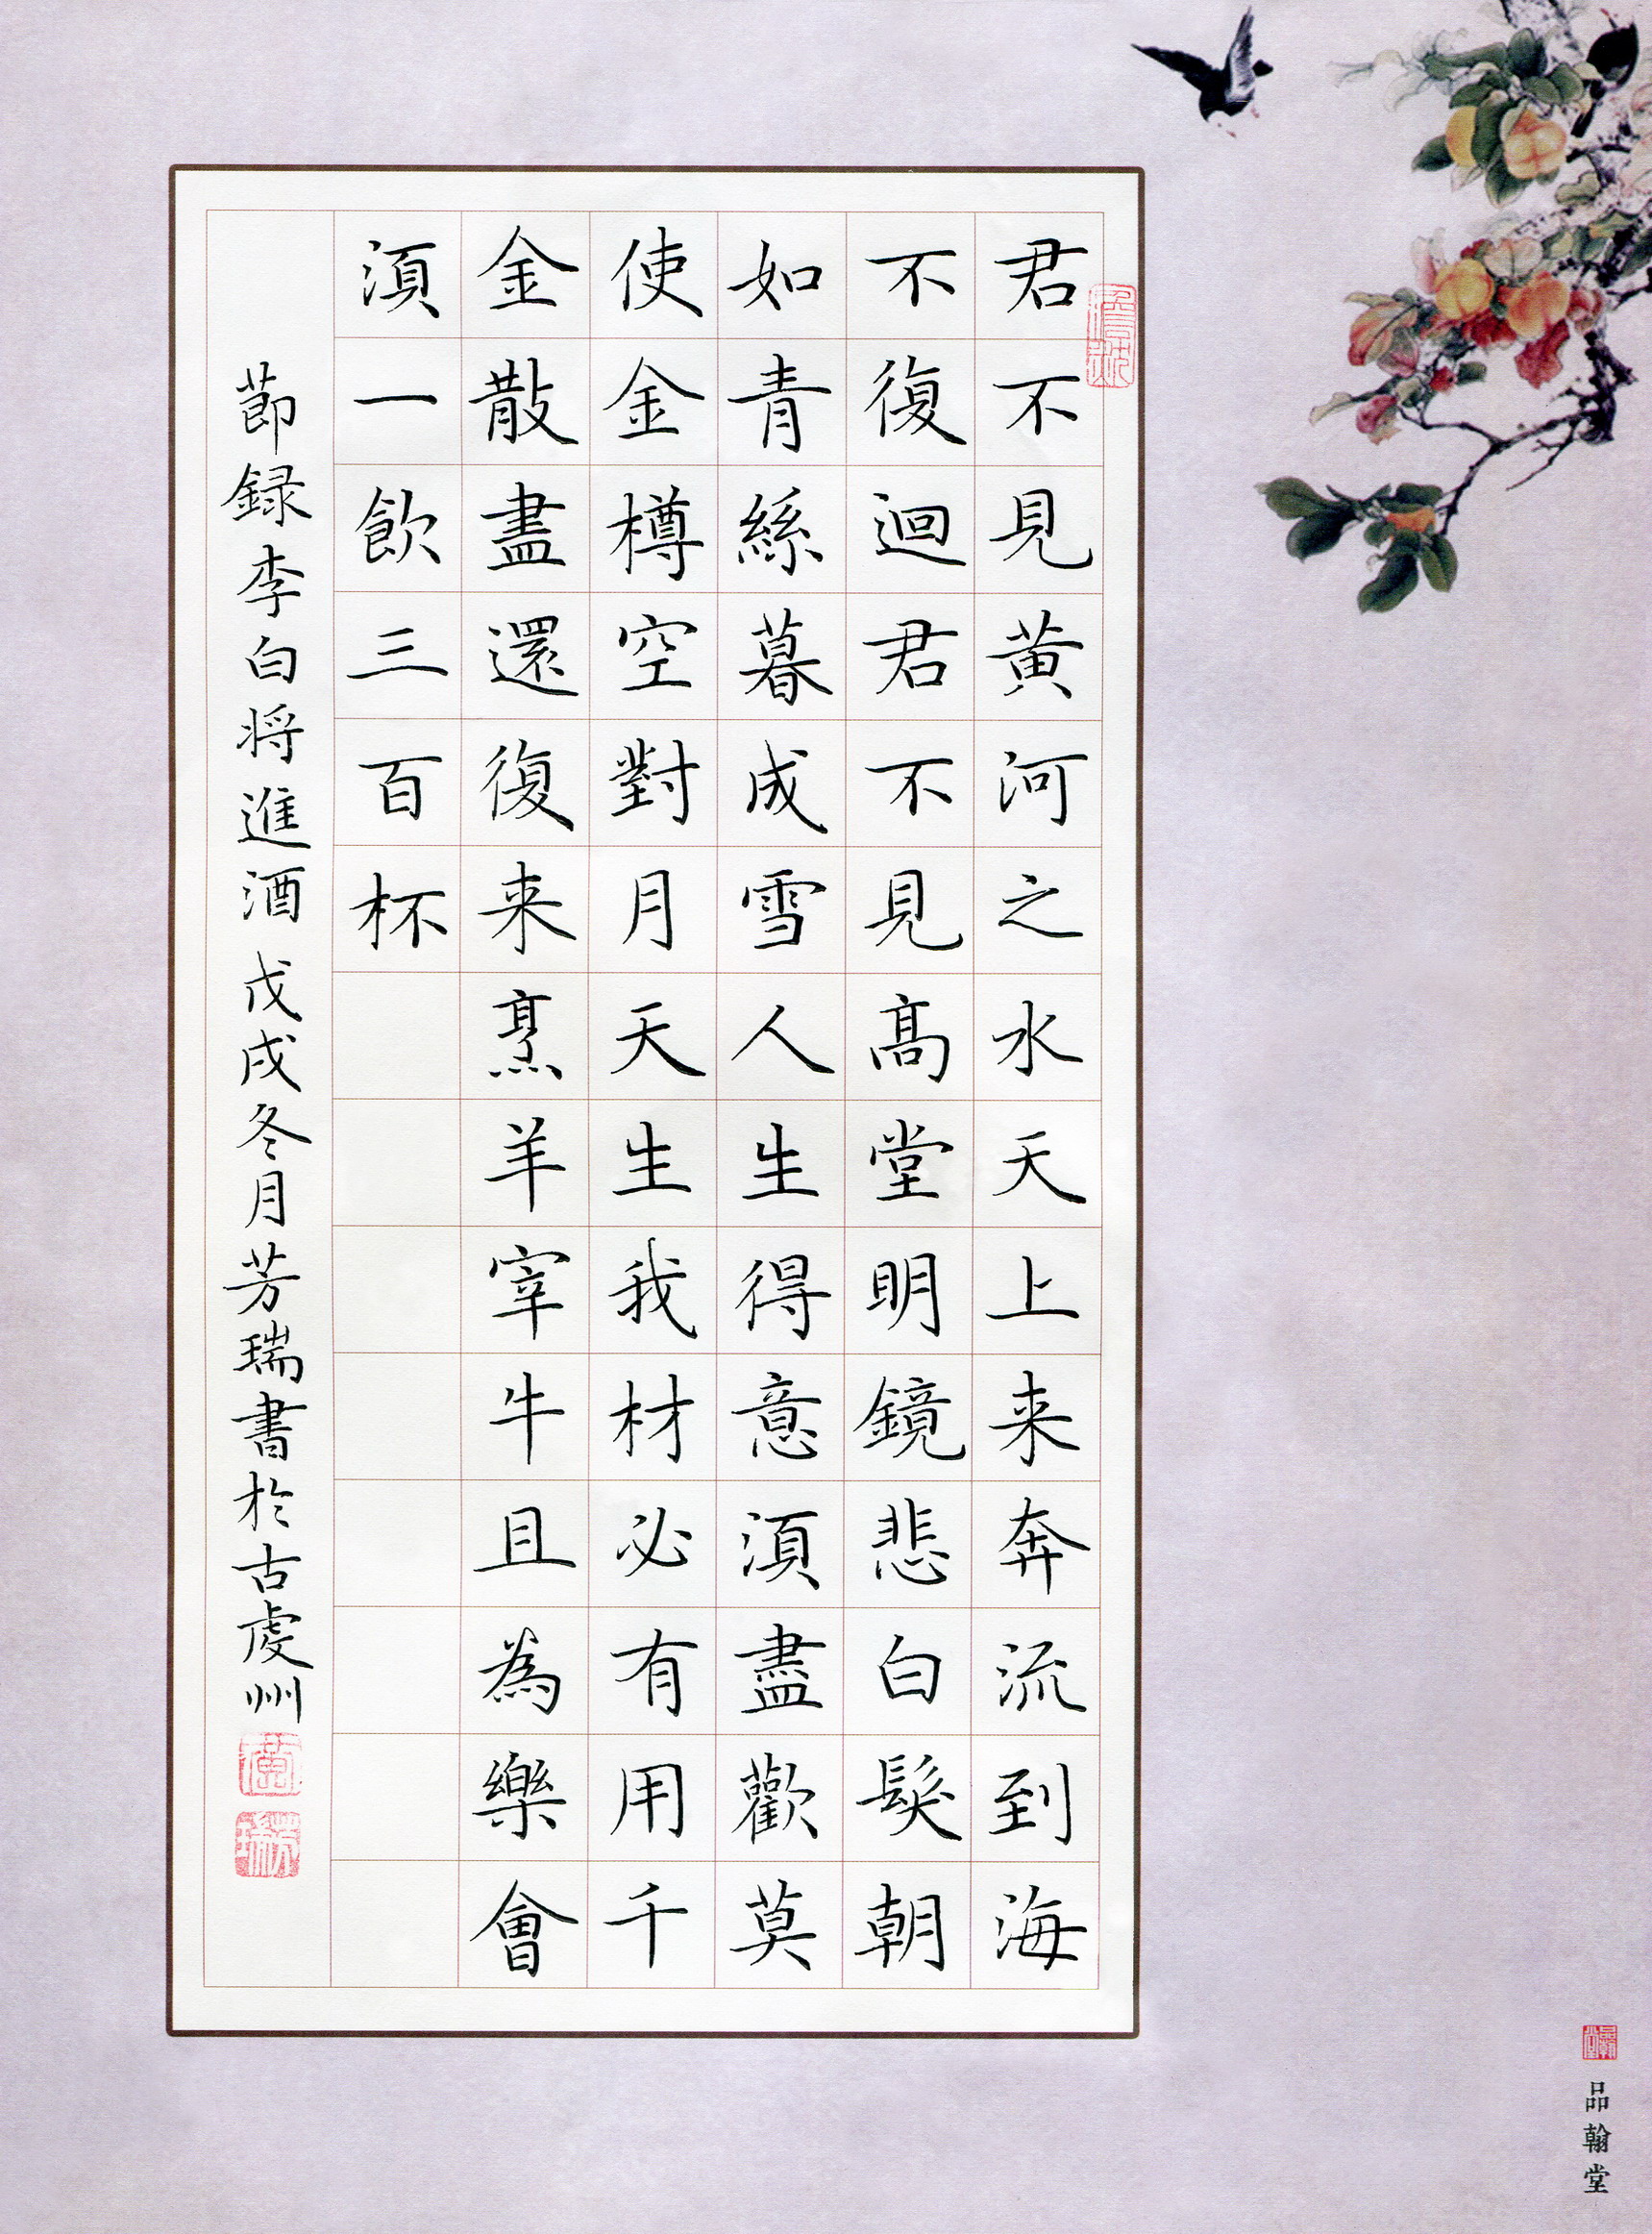 君不見黄河之水天上来奔流到海
不復迴君不見高堂明鏡悲白髮朝
如青絲暮成雪人生得意須盡歡莫
使金樽空對月天生我材必有用千
金散盡還復来烹羊宰牛且為樂會
須一飲三百杯
莭録李白将進酒 戊戌冬月芳瑞書於古虔州
品翰堂